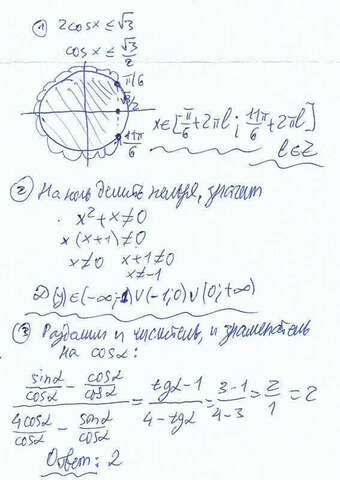 ① 2cosx ≤ √3
cosx ≤ √3/2
π/6
√3/2
11π/6
x∈[π/6+2πl; 11π/6+2πl]
l∈Z
② На ноль делить нельзя, значит
x²+x≠0
x(x+1)≠0
x≠0 x+1≠0
x≠-1
D(y)∈(-∞;-1)∪(-1;0)∪(0;+∞)
③ Разделим и числитель, и знаменатель
на cosα:
(sinα/cosα - cosα/cosα)/(4cosα/cosα - sinα/cosα) = (tgα-1)/(4-tgα) = (3-1)/(4-3) = 2/1 = 2
Ответ: 2